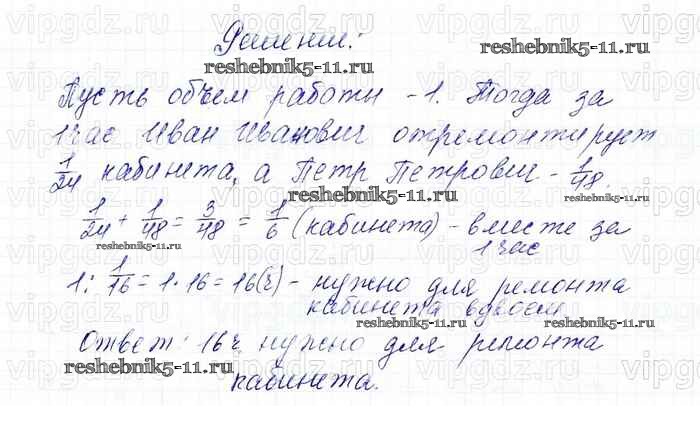 Решение:
Пусть объем работы - 1. Тогда за
1 час Иван Иванович отремонтирует
1/24 кабинета, а Петр Петрович - 1/48.
1/24 + 1/48 = 3/48 = 1/6 (кабинета) - вместе за
1 час
1 : 1/16 = 1 · 16 = 16 (ч) - нужно для ремонта
кабинета вдвоем.
Ответ: 16 ч нужно для ремонта
кабинета.
reshebnik5-11.ru
reshebnik5-11.ru
reshebnik5-11.ru
reshebnik5-11.ru
reshebnik5-11.ru
reshebnik5-11.ru
reshebnik5-11.ru
vipgdz.ru